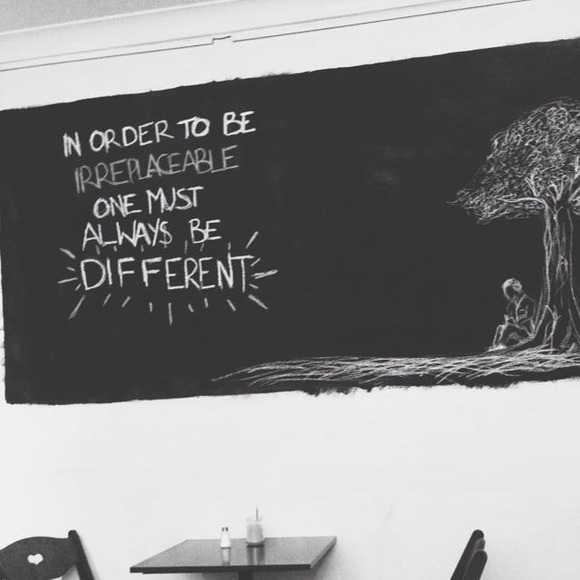 IN ORDER TO BE
IRREPLACEABLE
ONE MUST
ALWAYS BE
DIFFERENT